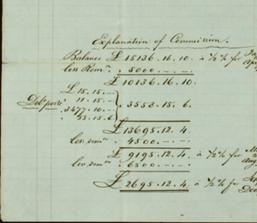 Explanation of Commission.
Balance £ 15136.16.10. à ½ % for
less Remce. 5000. — . —
£ 10136.16.10.
£ 15.15. —
11.15. —
3477.10. —
53.15.6
3558.15.6.
£ 13695.12.4.
Less 4500. — . —
£ 9195.12.4. à ½ % for
Less 6500. — . —
£ 2695.12.4. à ½ % for